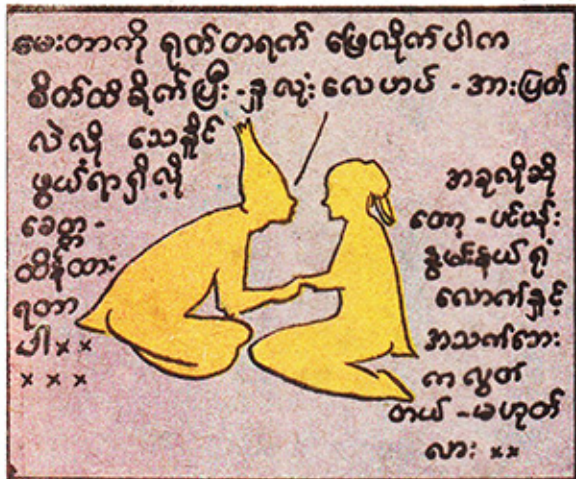 မေးတာကို ရုတ်တရက် ဖြေလိုက်ပါက
စိတ်ထိခိုက်ပြီး - နှလုံးလေဟပ် - အားပြတ်
လဲလို့ သေနိုင်
ဖွယ်ရာရှိလို့
ခေတ္တ -
ထိန်ထား
ရတာ
ပါ × ×
× × ×
အခုလိုဆို
တော့ - ပင်ပန်း
နွမ်းနယ်ရုံ
လောက်နှင့်
အသက်ဘေး
က လွတ်
တယ် - မဟုတ်
လား ××